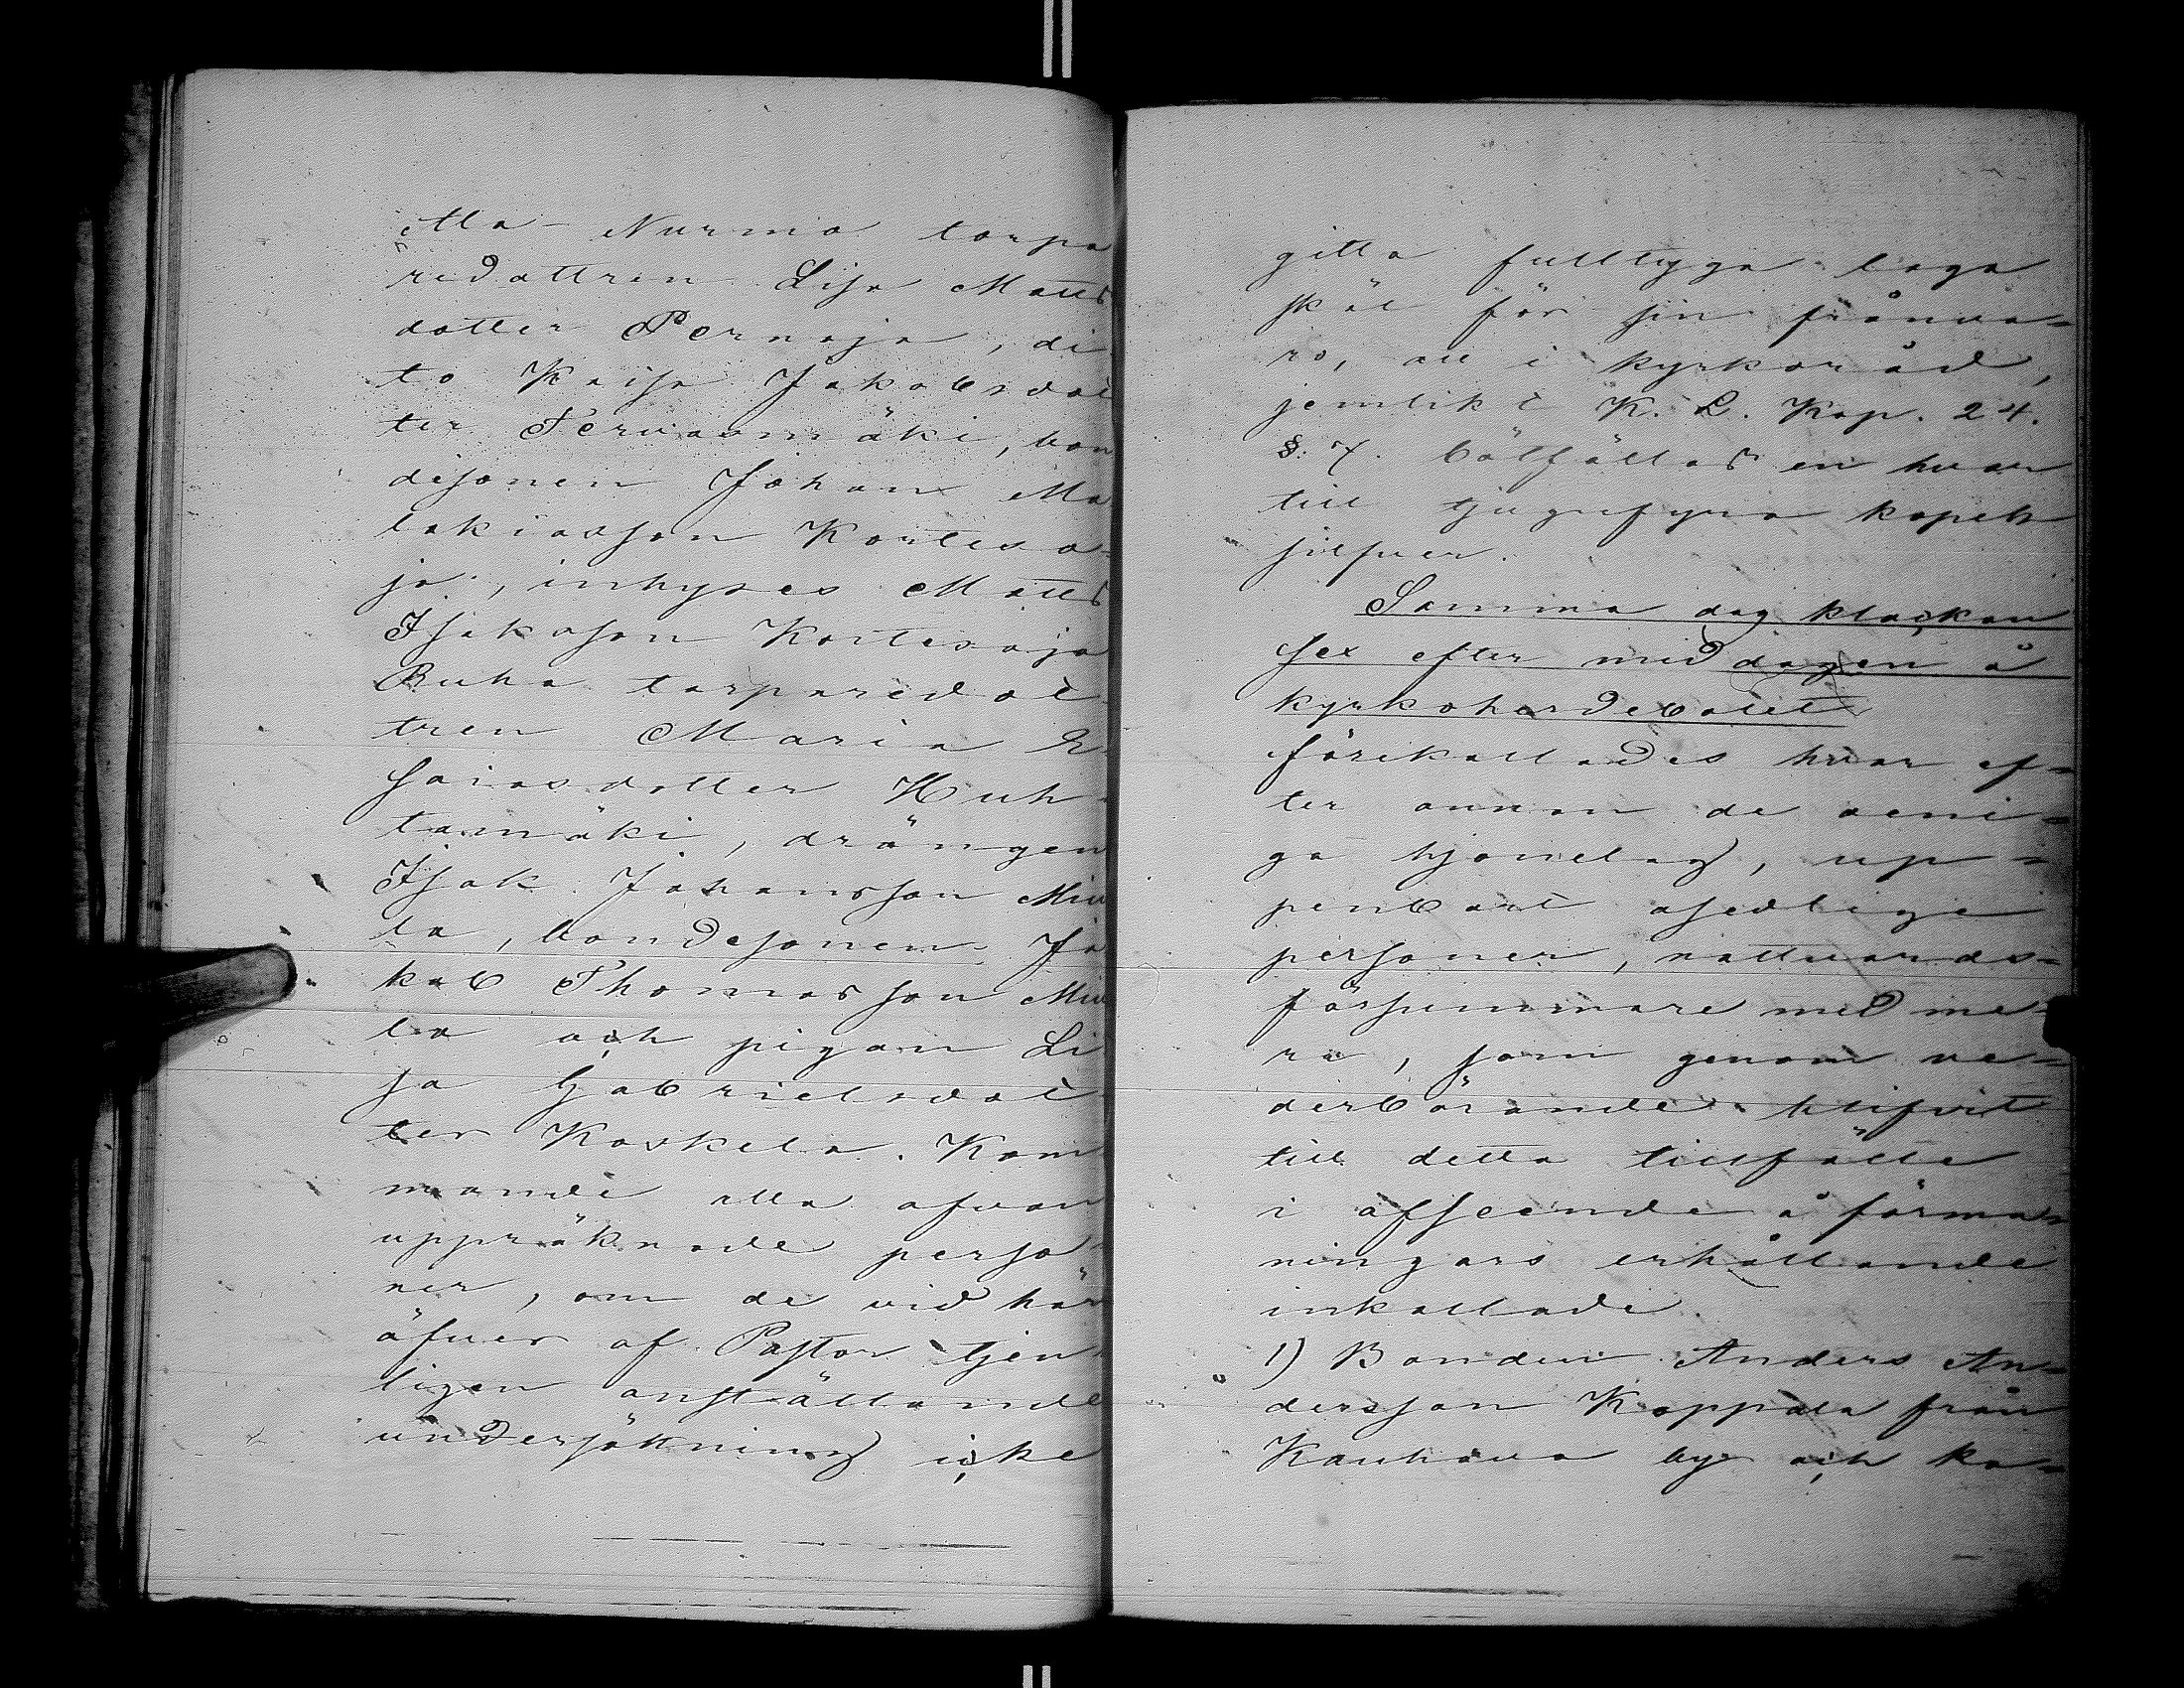 Ala-Nurmo torpa
redattren Lisa Matts
dotter Pernaja, di
to Kaisa Jakobsdot
ter Tervasmäki, bon
desonen Johan Ma
lakiasson Kortesa-
ja, inhyses Matts
Isaksson Kortesoja
Ruha torparedot
tren Maria E
saiasdotter Huh
tamäki, drängen
Isak Johansson Miu
la, bondesonen Ja
kob Thomasson Miu
la och pigan Li
sa Gabrielsdot
ter Koskela. Kom
mande alla ofvan
uppräknade perso
ner, om de vid här
öfver af Pastor tjen
ligen anställande
undersökning icke
gitta fulltyga laga
skäl för sin frånva-
ro, att i kyrkoråd,
jemlikt K. L. Kap. 24.
§. 7. bötfällas en hvar
till tjugufyra kopek
silfver.
Samma dag klockan
sex efter middagen å
kyrkoherdebolet
förekallades hvar ef-
ter annan de oeni-
ga hjonelag, up-
penbart osedliga
personer, nattvards-
försummare med me-
ra, som genom ve-
derbörande blifvit
till detta tillfälle
i afseende å förma-
ningars erhållande
inkallade.
1) Bonden Anders An-
dersson Koppala från
Kauhava by och ka-